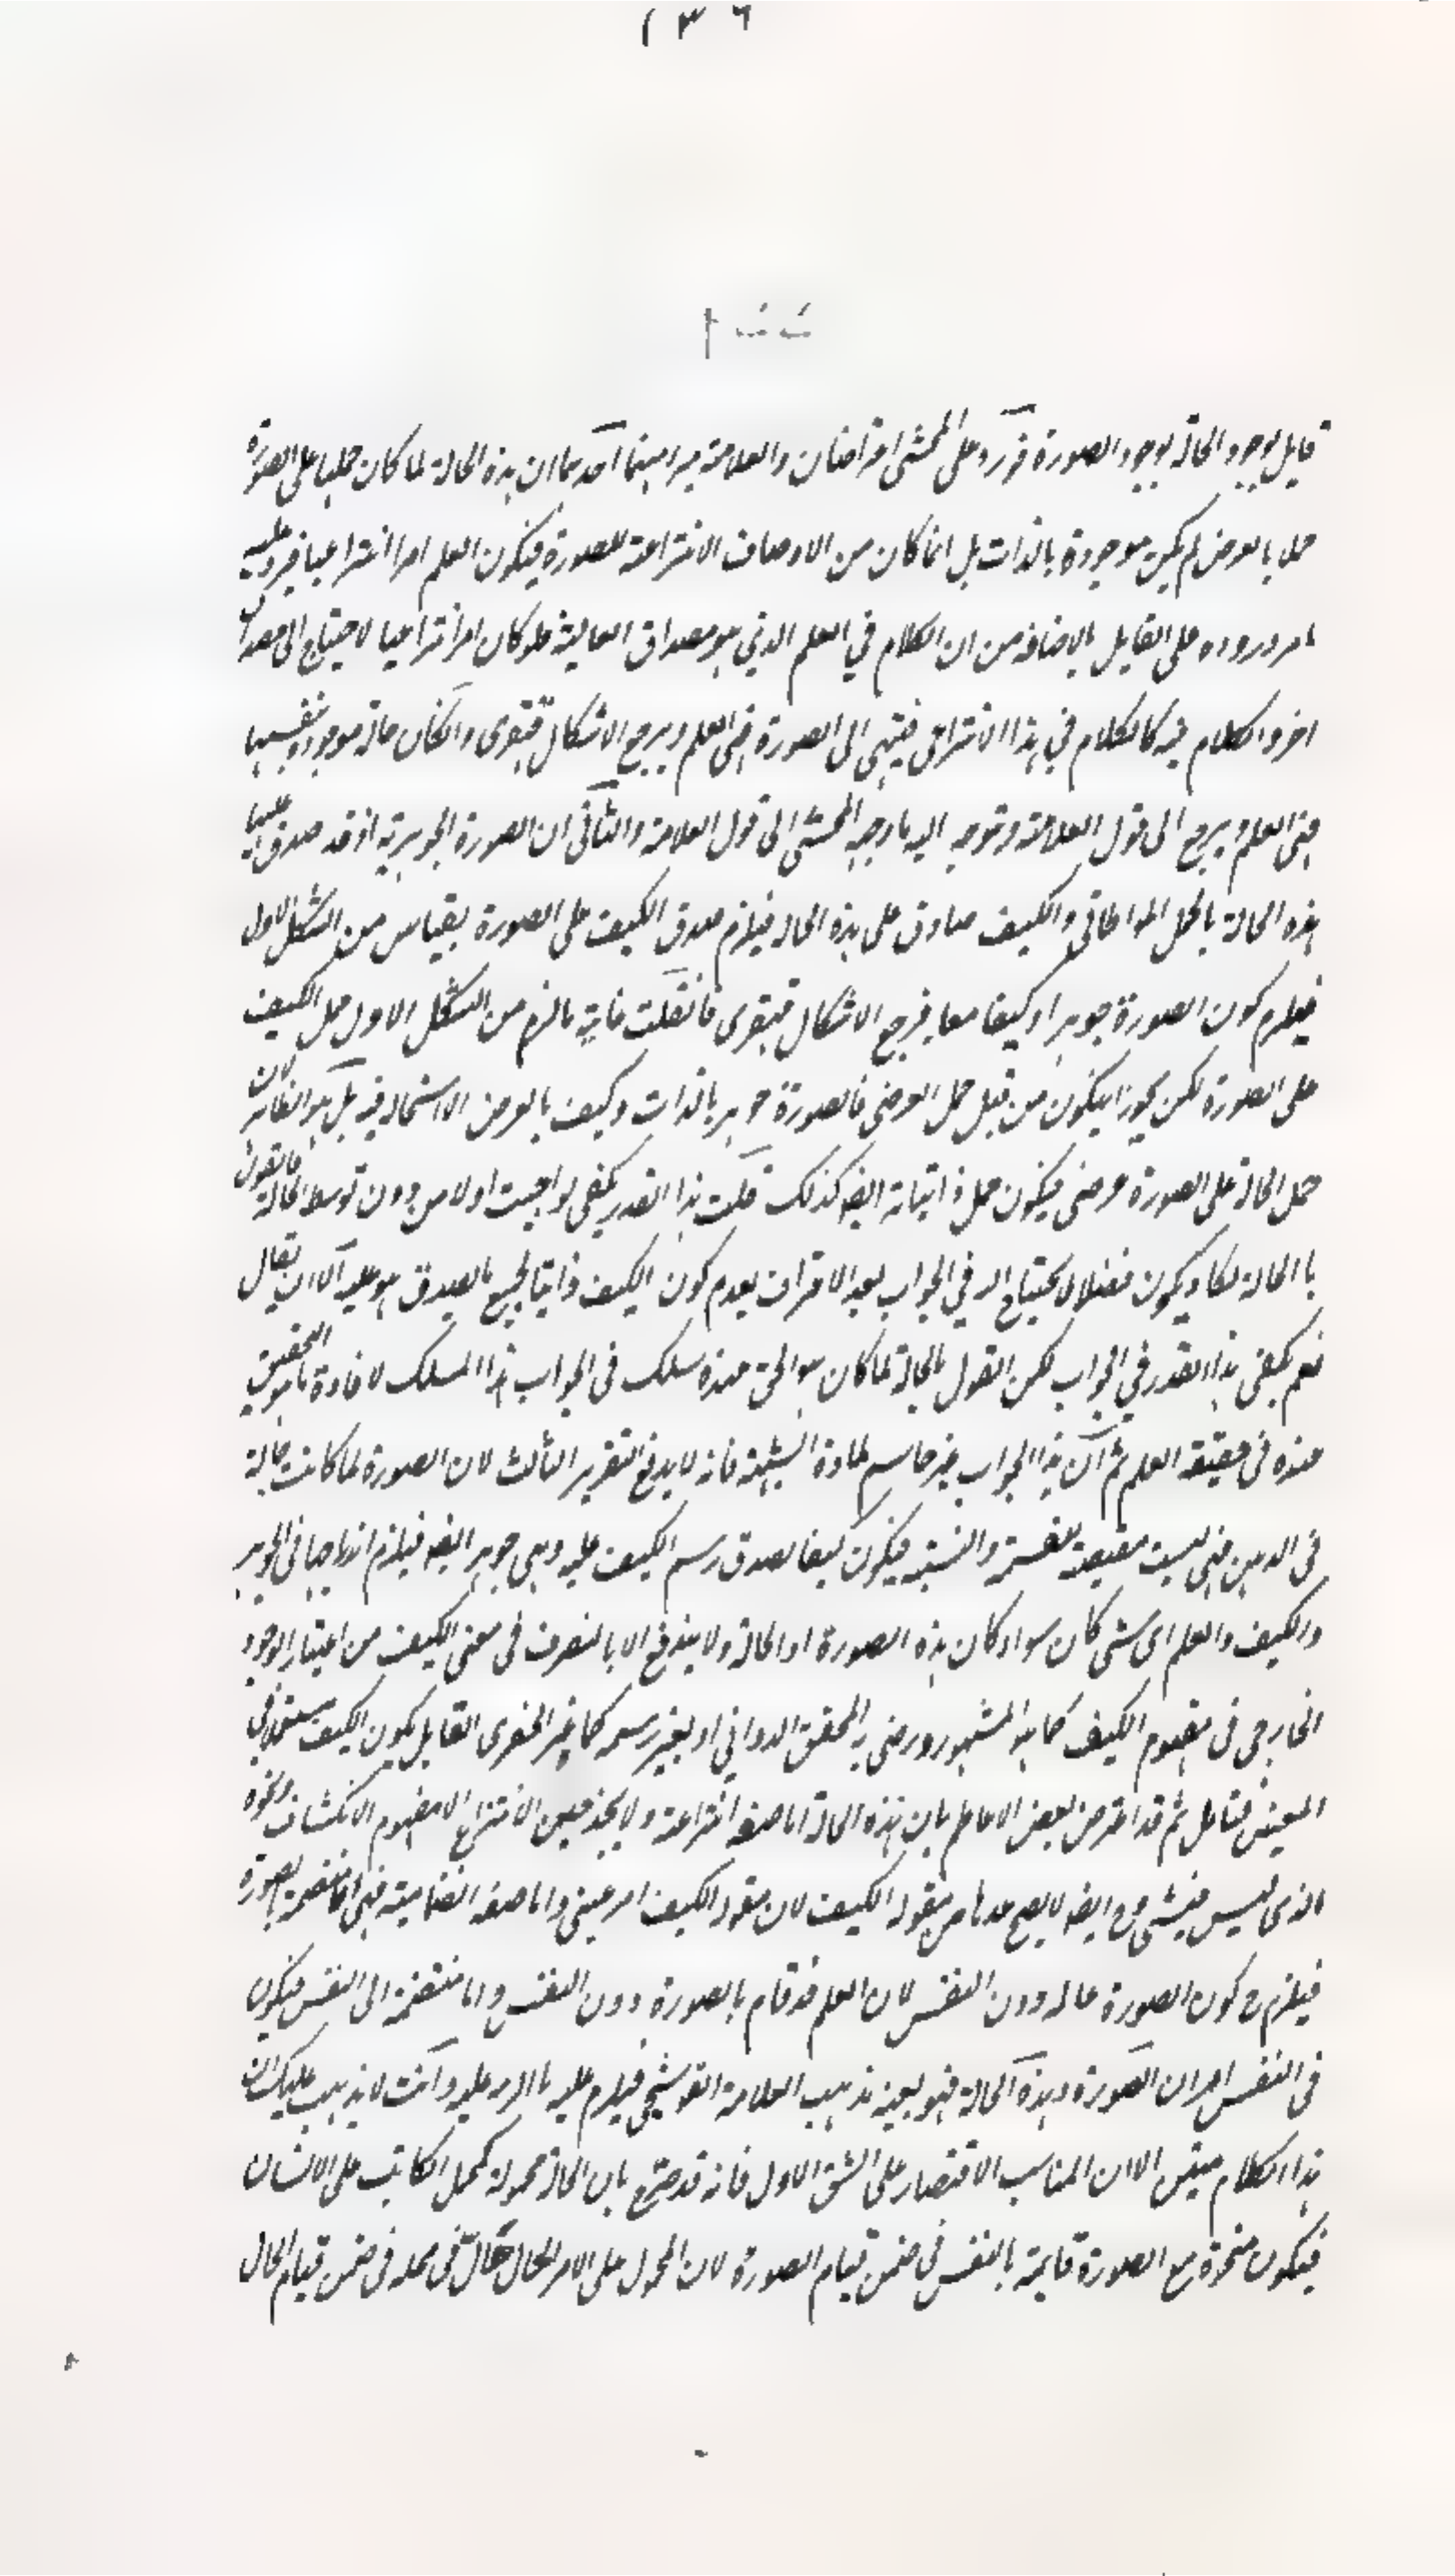 ١٣٦
قايل بوجود الحالة بوجود الصورة فورد على المحشى اعتراضان والعلامة مبرا منهما احدهما ان هذه الحالة لما كان حملها على الصورة
حملا بالعرض لم يكن موجودة بالذات بل انما كان من الاوصاف الانتزاعية للصورة فيكون العلم امرا انتزاعيا فيرد عليه
ما مر وروده على القايل بالاضافة من ان الكلام في العلم الذي هو مصداق العالمية فلو كان امرا انتزاعيا لاحتياج الى مصداق
اخر والكلام فيه كالكلام في هذا الانتزاعى فينتهى الى الصورة فهى العلم ويرجع الاشكال قهقرى وان كان حالة موجودة بنفسها
فهى العلم ويرجع الى قول العلامة وتوجه اليه ما وجه المحشى الى قول العلامة والثانى ان الصورة الجوهرية اذ قد صدق عليها
هذه الحالة بالحمل المواطاتى والكيف صادق على هذه الحالة فيلزم صدق الكيف على الصورة بقياس من الشكل الاول
فيلزم كون الصورة جوهرا وكيفا معا فرجع الاشكال قهقرى فان قلت غاية ما لزم من الشكل الاول حمل الكيف
على الصورة لكن يجوز ان يكون من قبيل حمل العرضى فالصورة جوهر بالذات وكيف بالعرض ولا استحالة فيه بل هو الظاهر لان
حمل الحالة على الصورة عرضى فيكون حمل ذاتياته ايضا كذلك قلت هذا القدر يكفى لو اجيب اولا من دون توسط الحالة فالقول
با الحالة لكاد يكون فضلا لا يحتاج اليه في الجواب بعد الاعتراف بعدم كون الكيف ذاتيا لجميع ما يصدق هو عليه الا ان يقال
نعم يكفى هذا القدر في الجواب لكن القول بالحالة لما كان هو الحق عنده سلك فى الجواب هذا المسلك لافادة ما هو التحقيق
عنده فى حقيقة العلم ثم ان هذا الجواب غير حاسم لمادة الشبهة فانه لا يدفع التقرير الثالث لان الصورة لما كانت حالة
فى الذهن فهى ليست مقتضية للقسمة والنسبة فيكون كيفا لصدق رسم الكيف عليه وهى جوهر ايضا فيلزم اندراجها فى الجوهر
والكيف والعلم اى شى كان سواء كان هذه الصورة او الحالة ولا يندفع الا بالتصرف فى معنى الكيف من اعتبار الوجود
الخارجى فى مفهوم الكيف كما هو المشهور ورضى به المحقق الدوانى او بغير رسمه كما غير الخفرى القايل بكون الكيف مستعملا في
المعنيين فتامل ثم قد اعترض بعض الاعاظم بان هذه الحالة اما صفة انتزاعية ولا يجد حين الانتزاع الا مفهوم الانكشاف ونحوه
الذى ليس بشى وح ايضا لا يصح عدها من مقولة الكيف لان مقولة الكيف امر عينى واما صفة انضمامية فهى اما منضمة بالصورة
فيلزم ح كون الصورة عالمة دون النفس لان العلم قد قام بالصورة دون النفس واما منضمة الى النفس فيكون
فى النفس امران الصورة وهذه الحالة فهو بعينه مذهب العلامة القوشجى فيلزم عليه ما الزم عليه وانت لا يذهب عليك ان
هذا الكلام متين الا ان المناسب الاقتصار على الشق الاول فانه قد صرح بان الحالة محمولة كحمل الكاتب على الانسان
فيكون متحدة مع الصورة قايمة بالنفس فى ضمن قيام الصورة لان المحمول على الامر الحال حال فى محله فى ضمن قيام الحال